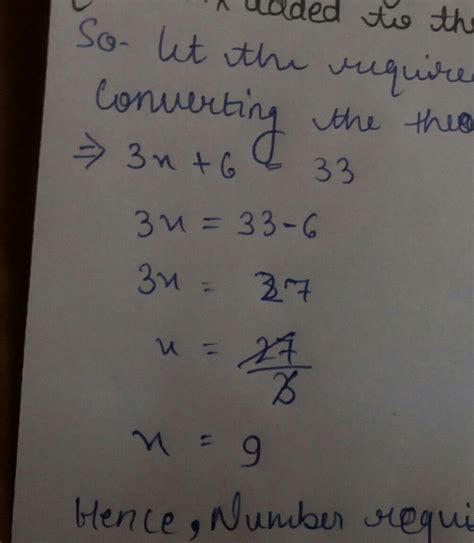 added to the
So- let the require
Converting the theo
⇒ 3x + 6 = 33
3x = 33-6
3x = 27
x = 27/3
x = 9
Hence, Number requi